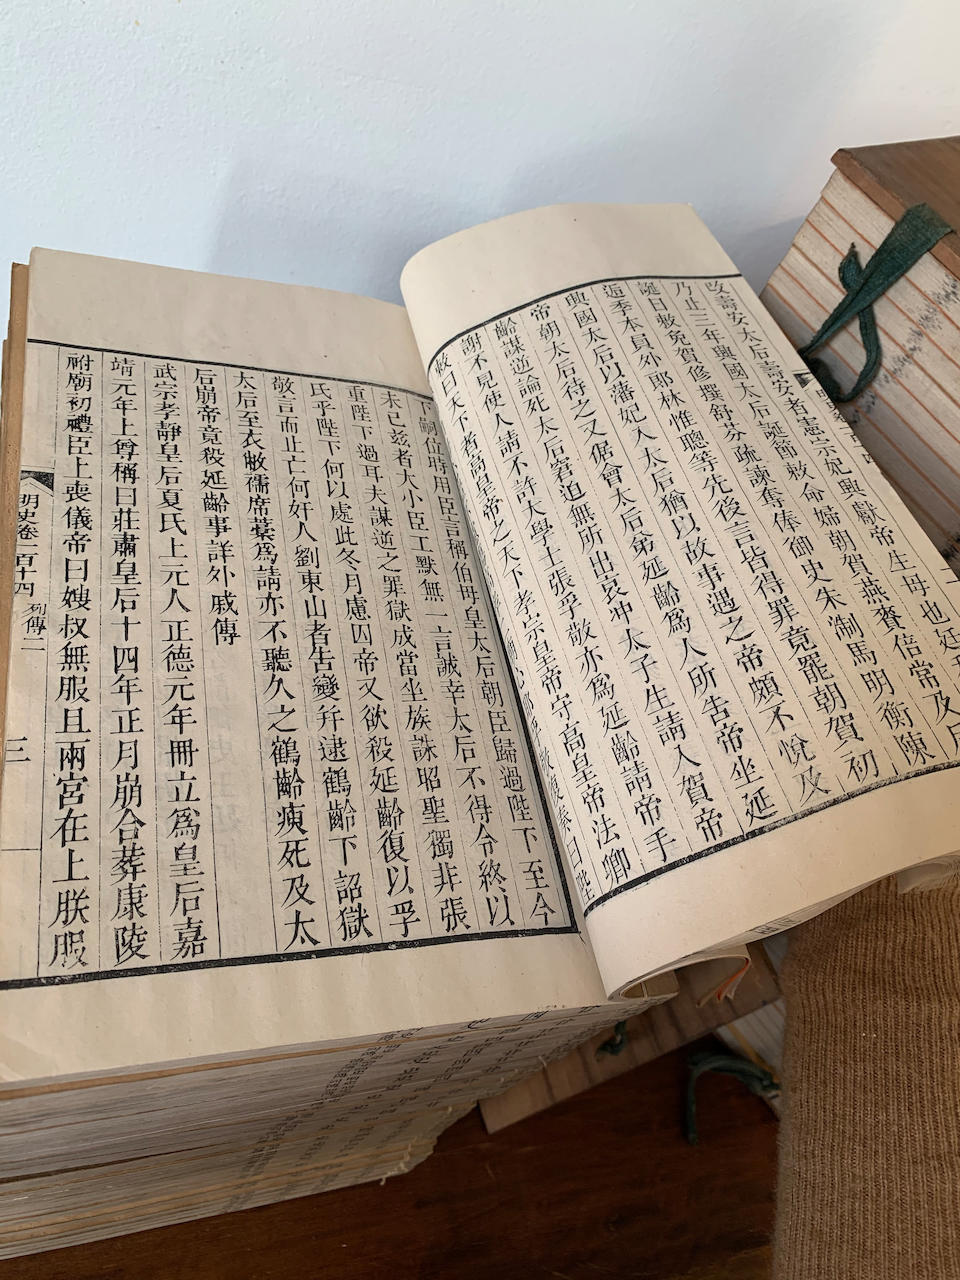 改壽安太后壽安者憲宗妃興獻帝生母也廷
乃止三年興國太后誕節敕命婦朝賀燕賚倍常及后
誕日敕免賀修撰舒芬疏諫奪俸御史朱淛馬明衡陳
逅季本員外郎林惟聰等先後言皆得罪竟罷朝賀初
興國太后以藩妃入太后猶以故事遇之帝頗不悅及
帝朝太后待之又倨會太后弟延齡爲人所告帝坐延
齡謀逆論死太后窘迫無所出哀冲太子生請入賀帝
謝不見使人請不許大學士張孚敬亦爲延齡請帝手
敕曰天下者高皇帝之天下孝宗皇帝守高皇帝法卿
復奏曰陛
下嗣位時用臣言稱伯母皇太后朝臣歸過陛下至今
未已玆者大小臣工默無一言誠幸太后不得令終以
重陛下過耳夫謀逆之罪獄成當坐族誅昭聖獨非張
氏乎陛下何以處此冬月慮囚帝又欲殺延齡復以孚
敬言而止亡何奸人劉東山者告變幷逮鶴齡下詔獄
太后至衣敝襦席藁爲請亦不聽久之鶴齡瘐死及太
后崩帝竟殺延齡事詳外戚傳
武宗孝靜皇后夏氏上元人正德元年冊立爲皇后嘉
靖元年上尊稱曰莊肅皇后十四年正月崩合葬康陵
祔廟初禮臣上喪儀帝曰嫂叔無服且兩宮在上朕服
明史卷一百十四 列傳二 三